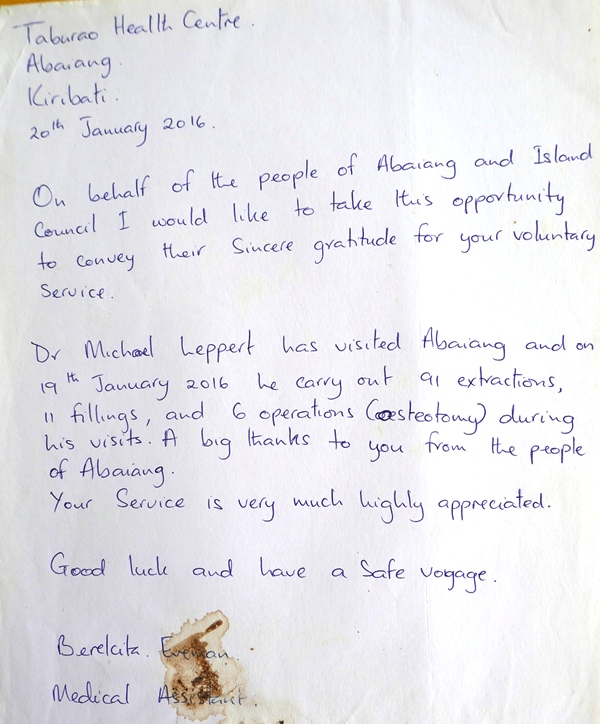 Taburao Health Centre.
Abaiang.
Kiribati.
20th January 2016.
On behalf of the people of Abaiang and Island
Council I would like to take this opportunity
to convey their Sincere gratitude for your voluntary
Service.
Dr Michael Leppert has visited Abaiang and on
19th January 2016 he carry out 91 extractions,
11 fillings, and 6 operations (oesteotomy) during
his visits. A big thanks to you from the people
of Abaiang.
Your Service is very much highly appreciated.
Good luck and have a Safe voyage.
Medical Assistant.